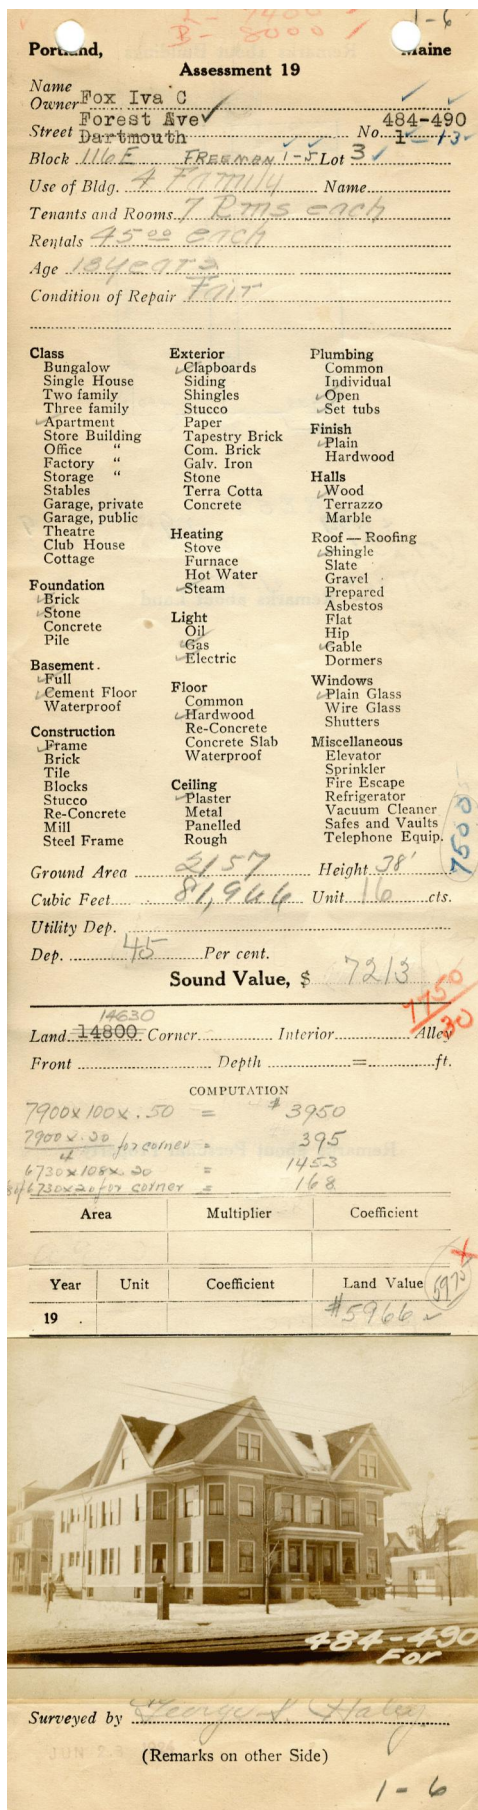 L - 7400
B - 8000
1-6
Portland, Maine
Assessment 19
Name
Owner Fox Iva C
Forest Ave 484-490
Street Dartmouth No. 1 - 13
Block 116E FREEMAN 1-5 Lot 3
Use of Bldg. 4 Family Name
Tenants and Rooms 7 Rms each
Rentals 45.00 each
Age 18 years
Condition of Repair Fair
Class
Bungalow
Single House
Two family
Three family
Apartment
Store Building
Office "
Factory "
Storage "
Stables
Garage, private
Garage, public
Theatre
Club House
Cottage
Foundation
Brick
Stone
Concrete
Pile
Basement.
Full
Cement Floor
Waterproof
Construction
Frame
Brick
Tile
Blocks
Stucco
Re-Concrete
Mill
Steel Frame
Exterior
Clapboards
Siding
Shingles
Stucco
Paper
Tapestry Brick
Com. Brick
Galv. Iron
Stone
Terra Cotta
Concrete
Heating
Stove
Furnace
Hot Water
Steam
Light
Oil
Gas
Electric
Floor
Common
Hardwood
Re-Concrete
Concrete Slab
Waterproof
Ceiling
Plaster
Metal
Panelled
Rough
Plumbing
Common
Individual
Open
Set tubs
Finish
Plain
Hardwood
Halls
Wood
Terrazzo
Marble
Roof — Roofing
Shingle
Slate
Gravel
Prepared
Asbestos
Flat
Hip
Gable
Dormers
Windows
Plain Glass
Wire Glass
Shutters
Miscellaneous
Elevator
Sprinkler
Fire Escape
Refrigerator
Vacuum Cleaner
Safes and Vaults
Telephone Equip.
7500
Ground Area 2157 Height 38'
Cubic Feet 81,966 Unit 16 cts.
Utility Dep.
Dep. 45 Per cent.
Sound Value, $ 7213
7750
30
14630
Land 14800 Corner Interior Alley
Front Depth = ft.
COMPUTATION
7900 x 100 x .50 = $3950
7900 x .20 for corner = 395
4
6730 x 108 x .20 = 1453
6730 x 20 for corner = 168
Area Multiplier Coefficient
Year Unit Coefficient Land Value
5975
19 . $5966
484-490
For
Surveyed by George S. Haley
(Remarks on other Side)
1-6